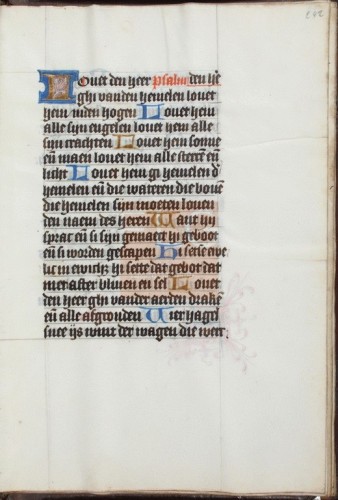 Louet den heer psalm den he
ghi vanden hemelen louet
hem inden hogen Louet hem
alle sijn engelen louet hem alle
sijn crachten Louet hem sonne
en̄ maen louet hem alle sterrē en̄
licht Louet hem gi hemelen d̕
hemelen en̄ die wateren die bouē
die hemelen sijn moeten louen
den naem des heren Want hi
sprac en̄ si sijn gemaect hi geboot
en̄ si worden gescapen Hi sette ewe
lic in ewich hi sette dat gebot dat
niet after bliuen en sel Louet
den heer ghi vander aerden drakē
en̄ alle afgronden Vier hagel
snee ijs wint der